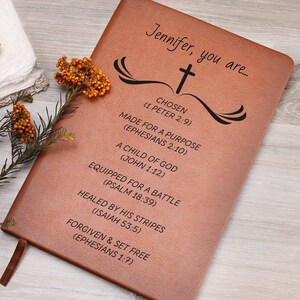 Jennifer, you are...
CHOSEN
(1 PETER 2:9)
MADE FOR A PURPOSE
(EPHESIANS 2:10)
A CHILD OF GOD
(JOHN 1:12)
EQUIPPED FOR A BATTLE
(PSALM 18:39)
HEALED BY HIS STRIPES
(ISAIAH 53:5)
FORGIVEN & SET FREE
(EPHESIANS 1:7)